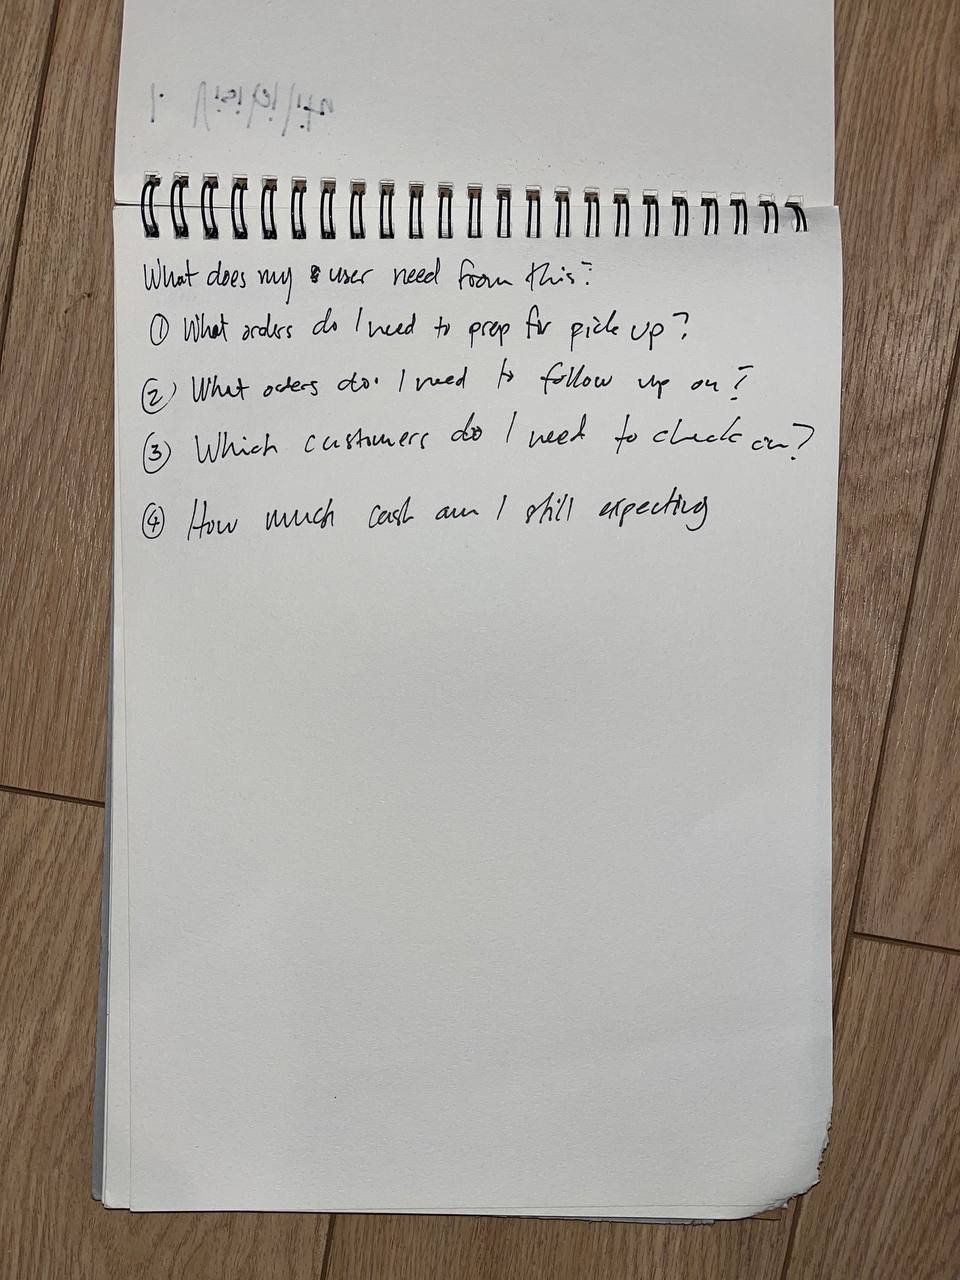 What does my user need from this?
① What orders do I need to prep for pick up?
② What oders do I need to follow up on?
③ Which customers do I need to check on?
④ How much cash am I still expecting